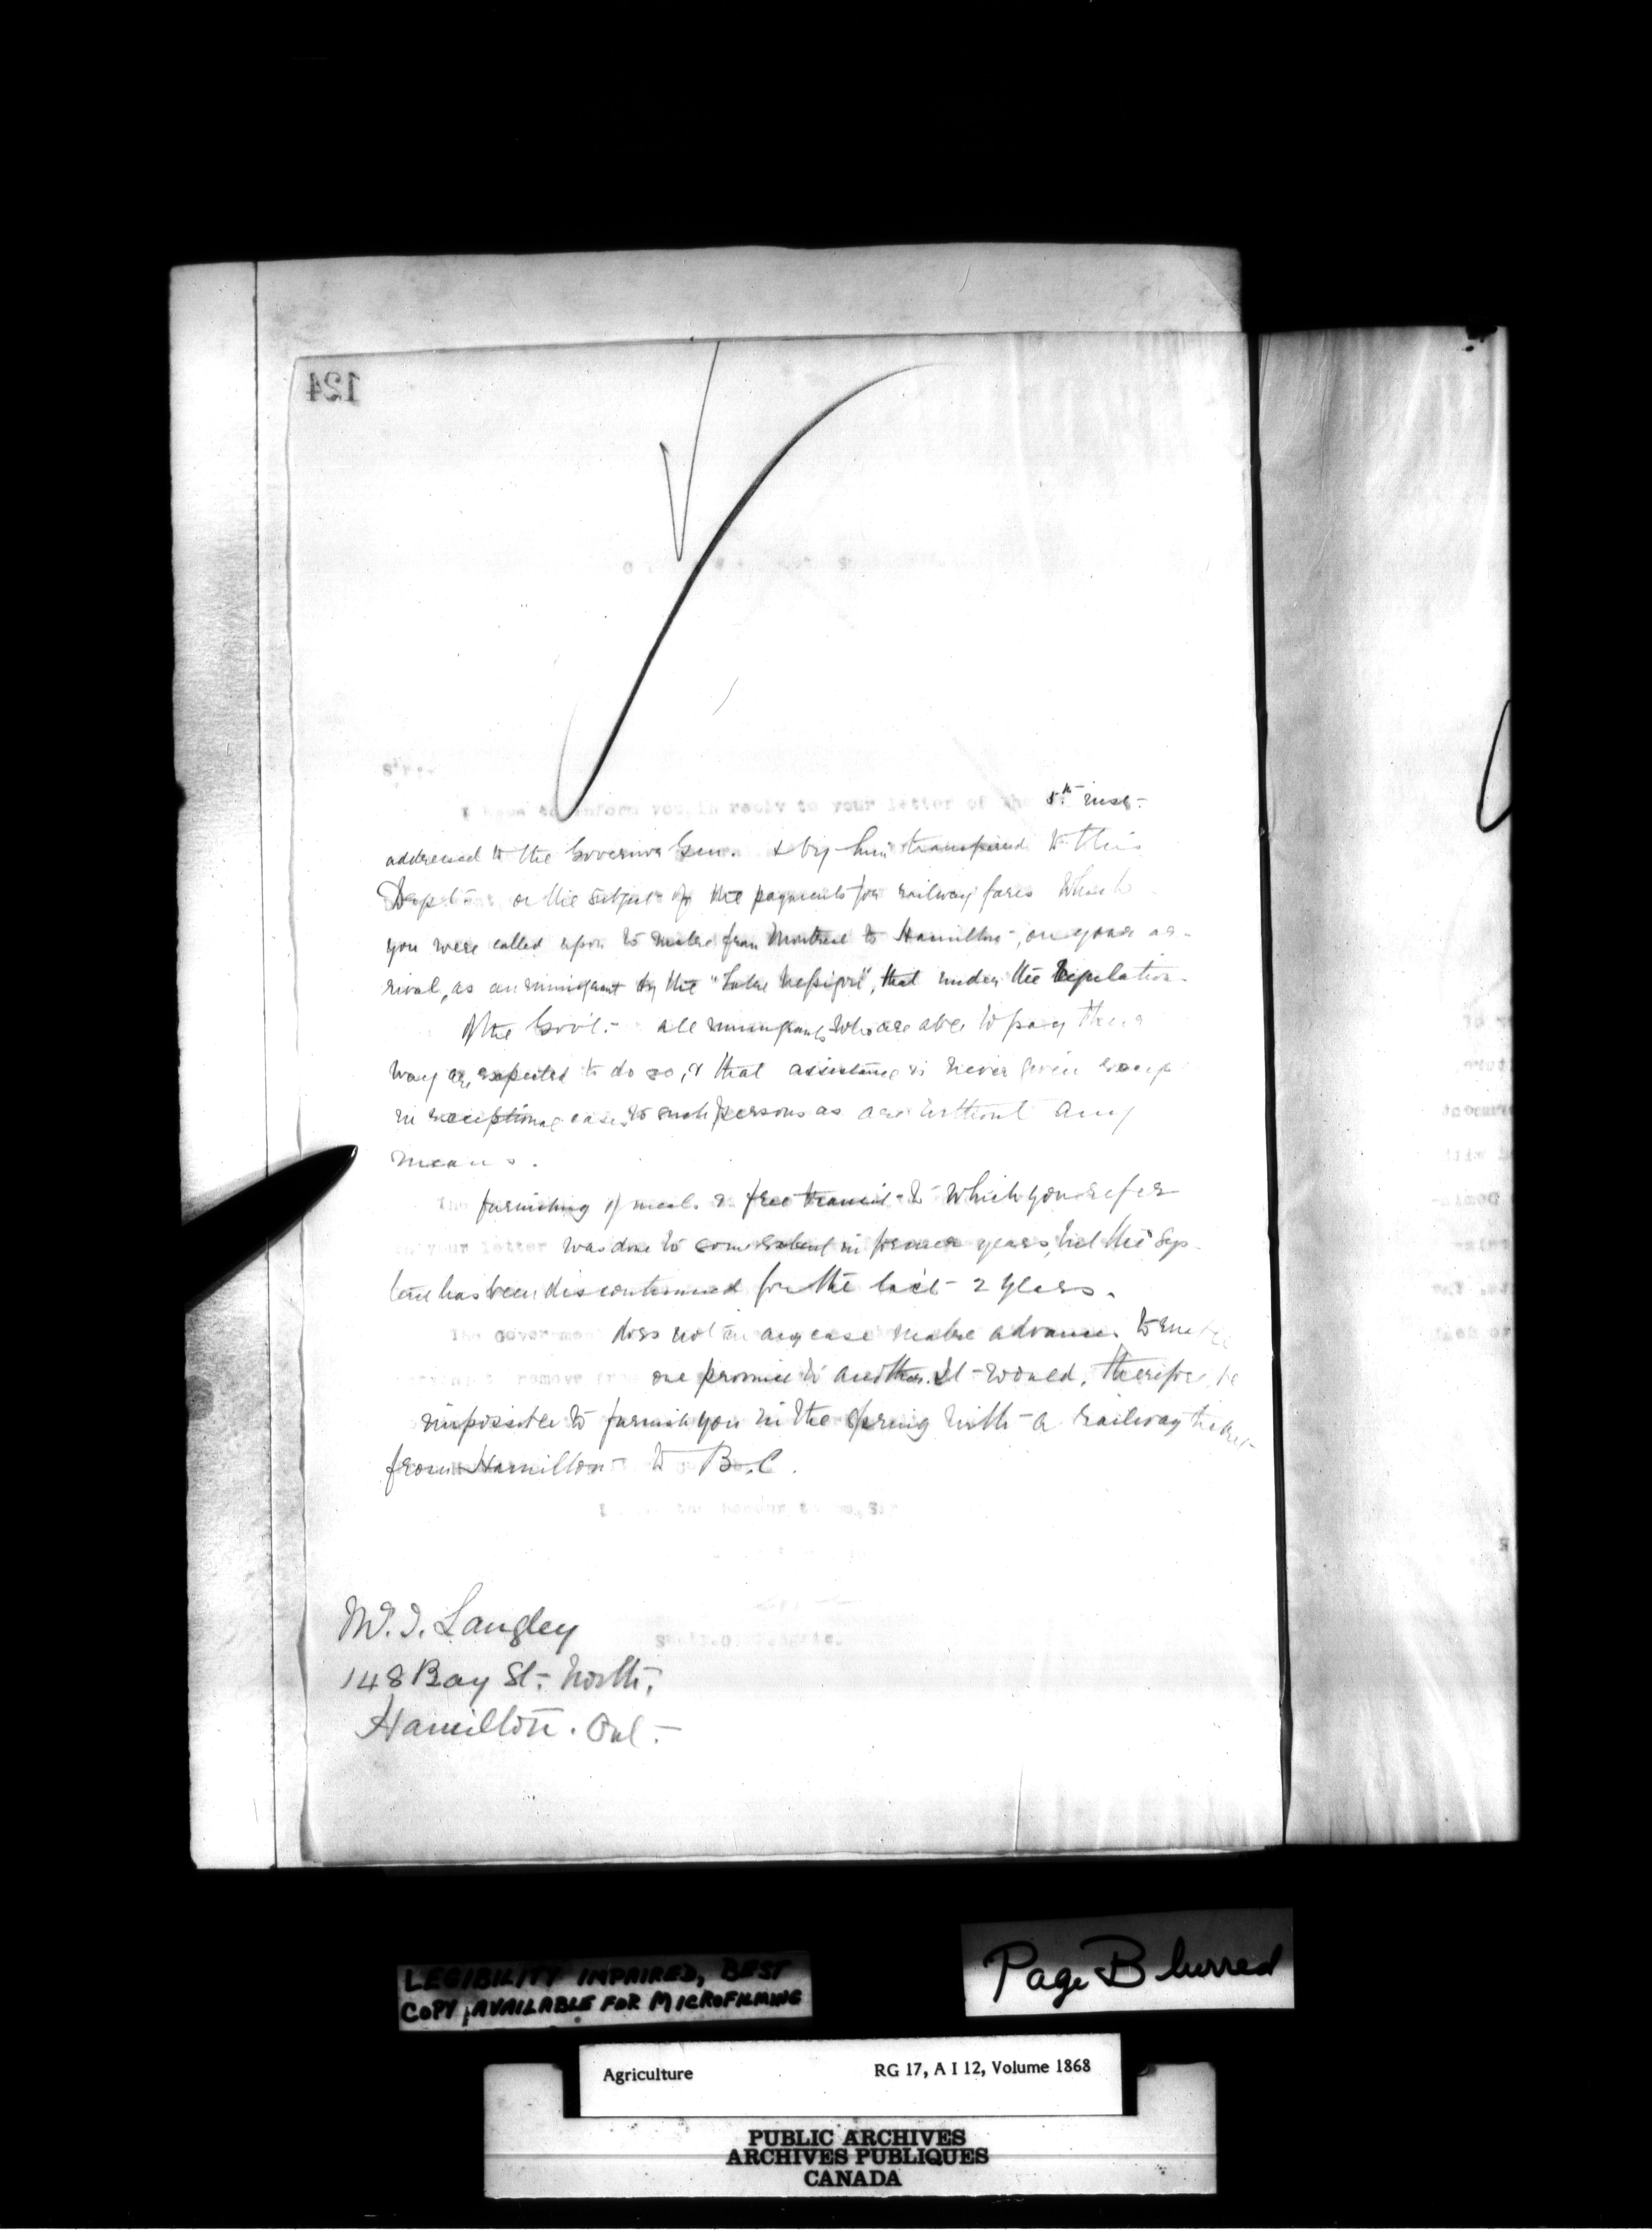 124
Sir:-
I have to inform you in reply to your letter of the 5th inst-
addressed to the Governor Gen. & by him transferred to this
Dept- on the subject of the payments for railway fares which
you were called upon to make from Montreal to Hamilton-, on your ar-
rival, as an immigrant by the "Lake Nepigon", that under the regulation-
of the Gov't.- all immigrants who are able to pay their
way are expected to do so, & that assistance is never given except
in exceptional cases to such persons as are without any
means.
The furnishing of meals & free transit- to which you refer
in your letter was done to some extent in former years, but the sys-
tem has been discontinued for the last- 2 years.
The Government does not in any case make advances to
remove from one province to another. It- would, therefore, be
impossible to furnish you in the spring with- a railway ticket-
from Hamilton- to B.C.
the honour to be, Sir
Langley
148 Bay St- North,
Hamilton. Ont.-
LEGIBILITY IMPAIRED, BEST
COPY AVAILABLE FOR MICROFILMING
Page Blurred
Agriculture RG 17, A I 12, Volume 1868
PUBLIC ARCHIVES
ARCHIVES PUBLIQUES
CANADA